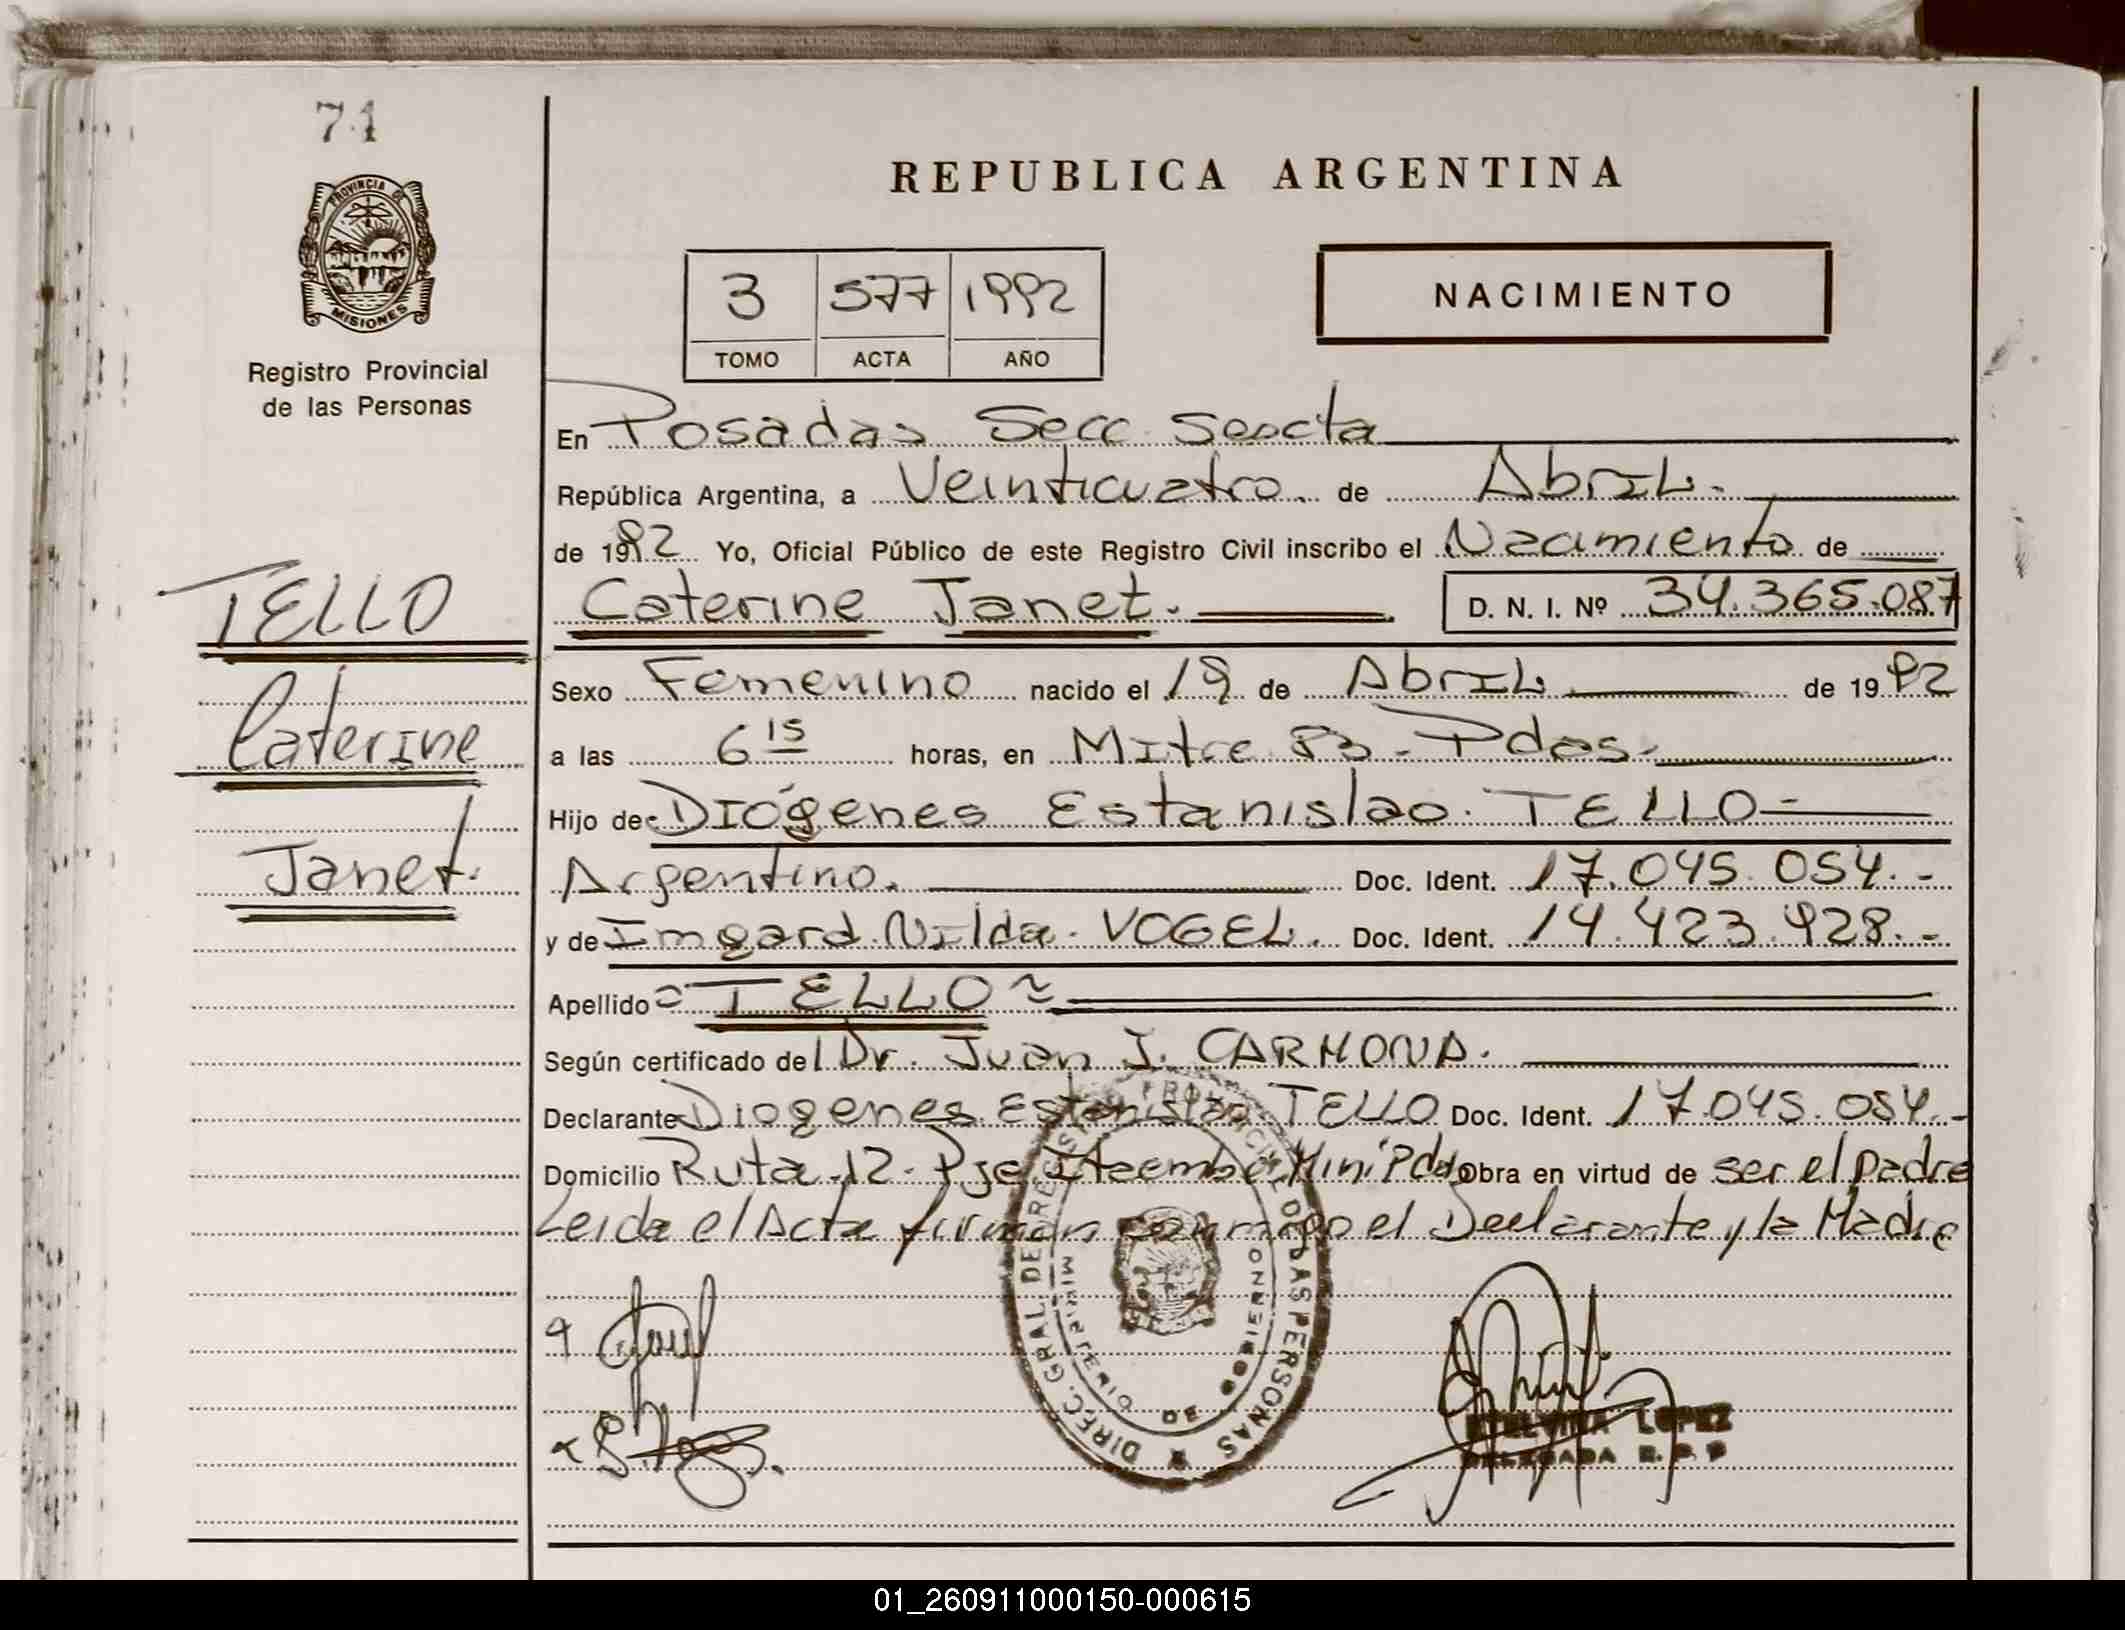 71
PROVINCIA DE
MISIONES
Registro Provincial
de las Personas
TELLO
Caterine
Janet.
REPUBLICA ARGENTINA
3 577 1992
TOMO ACTA AÑO
NACIMIENTO
En Posadas Secc Sexta
República Argentina, a Veinticuatro. de Abril.
de 1992 Yo, Oficial Público de este Registro Civil inscribo el Nacimiento de
Caterine Janet. D. N. I. Nº 34.365.087
Sexo Femenino nacido el 19 de Abril de 1992
a las 6 15 horas, en Mitre 83 - Pdas.
Hijo de Diógenes Estanislao TELLO -
Argentino. Doc. Ident. 17.045.054.-
y de Imgard Nilda VOGEL. Doc. Ident. 14.423.928.-
Apellido = TELLO =
Según certificado del Dr. Juan J. CARMONA.
Declarante Diogenes Estanislao TELLO Doc. Ident. 17.045.054.-
Domicilio Ruta 12. Pje Itaembe Mini Pdas Obra en virtud de ser el padre
Leida el Acta firman conmigo el Declarante y la Madre
DIREC. GRAL DE REGISTRO PROVINCIAL DE LAS PERSONAS
MINISTERIO DE GOBIERNO
LOPEZ
DELEGADA R. P. P
01_260911000150-000615